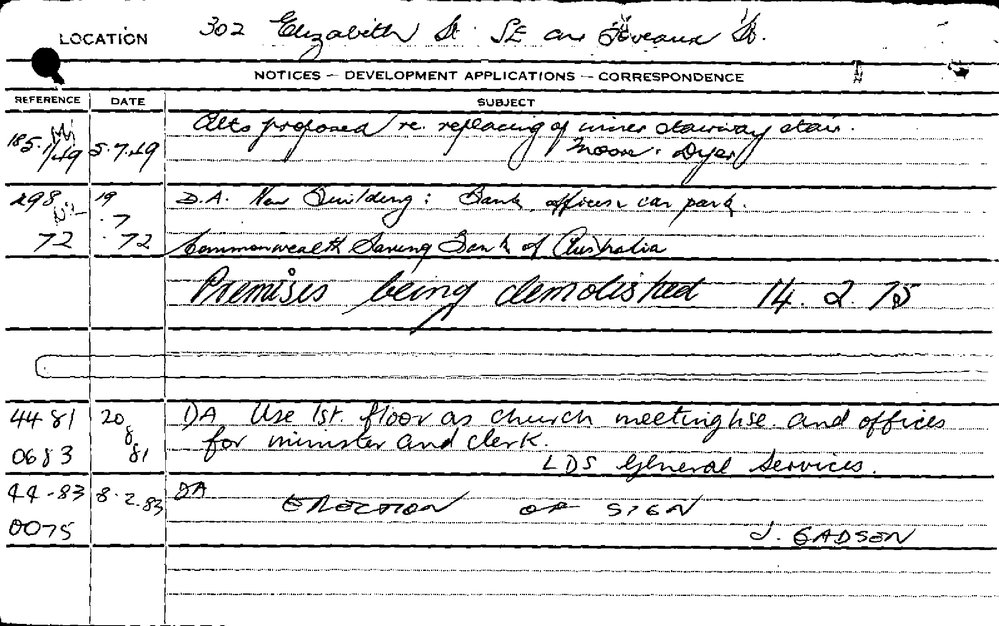 LOCATION 302 Elizabeth St. SE cnr Foveaux St.
NOTICES — DEVELOPMENT APPLICATIONS — CORRESPONDENCE
REFERENCE DATE SUBJECT
185/49 5.7.49 Alts proposed re. replacing of inner stairway stair.
Moore. Dyer
298 19 D.A. New Building: Bank, offices & car park.
72 .7.72 Commonwealth Saving Bank of Australia
Premises being demolished 14.2.75
44 81 20 DA Use 1st. floor as church meetinghse. and offices
8 for minister and clerk.
0683 81 LDS General Services.
44-83 8.2.83 DA
ERECTION OF SIGN
0075 J. GADSEN